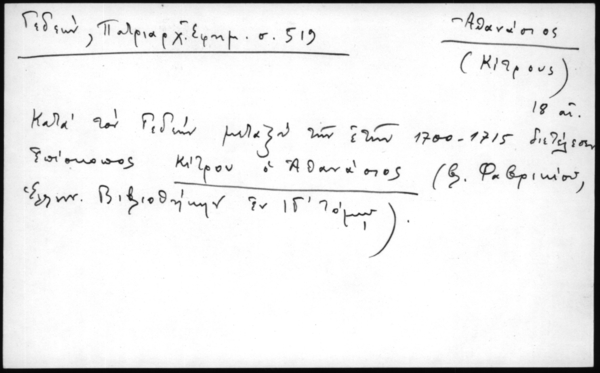 Γεδεών, Πατριαρχ. Εφημ. σ. 519
Ἀθανάσιος
(Κίτρους)
18 αἰ.
Κατά τόν Γεδεών μεταξύ τῶν ἐτῶν 1700-1715 διετέλεσεν
Ἐπίσκοπος Κίτρου ὁ Ἀθανάσιος (β. Φαβρικίου,
ἑλλην. Βιβλιοθήκην ἐν ΙΒ' τόμῳ).